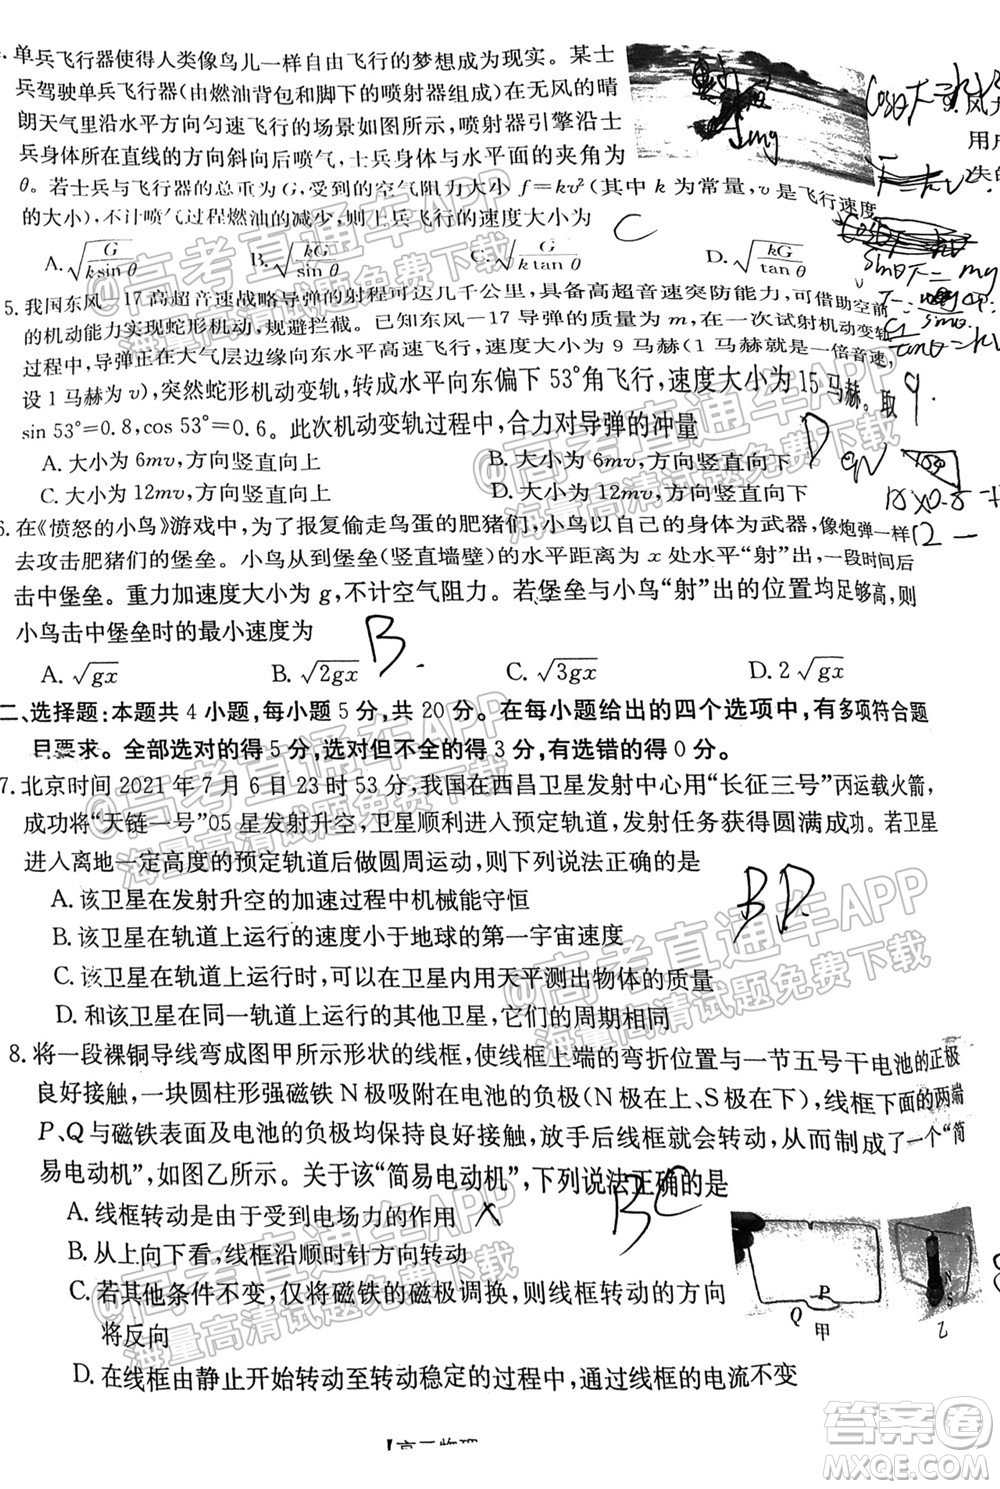 单兵飞行器使得人类像鸟儿一样自由飞行的梦想成为现实。某士
兵驾驶单兵飞行器(由燃油背包和脚下的喷射器组成)在无风的晴
朗天气里沿水平方向匀速飞行的场景如图所示,喷射器引擎沿士
兵身体所在直线的方向斜向后喷气,士兵身体与水平面的夹角为
θ。若士兵与飞行器的总重量为G,受到的空气阻力大小 f=kv²(其中 k 为常量,v 是飞行速度
的大小),不计喷气过程燃油的减少,则士兵飞行的速度大小为 C
A. √(G/(k sin θ)) B. √(kG/sin θ) C. √(G/(k tan θ)) D. √(kG/tan θ)
5. 我国东风—17高超音速战略导弹的射程可达几千公里,具备高超音速突防能力,可借助空前
的机动能力实现蛇形机动,规避拦截。已知东风—17导弹的质量为 m,在一次试射机动变轨
过程中,导弹正在大气层边缘向东水平高速飞行,速度大小为 9 马赫(1 马赫为一倍音速,
设 1 马赫为 v),突然蛇形机动变轨,转成水平向东偏下 53°角飞行,速度大小为 15 马赫。取
sin 53°=0.8,cos 53°=0.6。此次机动变轨过程中,合力对导弹的冲量 D
A. 大小为 6mv,方向竖直向上 B. 大小为 6mv,方向竖直向下
C. 大小为 12mv,方向竖直向上 D. 大小为 12mv,方向竖直向下
6. 在《愤怒的小鸟》游戏中,为了报复偷走鸟蛋的肥猪们,小鸟以自己的身体为武器,像炮弹一样
去攻击肥猪们的堡垒。小鸟从到堡垒(竖直墙壁)的水平距离为 x 处水平“射”出,一段时间后
击中堡垒。重力加速度大小为 g,不计空气阻力。若堡垒与小鸟“射”出的位置均足够高,则
小鸟击中堡垒时的最小速度为 B.
A. √gx B. √2gx C. √3gx D. 2√gx
二、选择题:本题共 4 小题,每小题 5 分,共 20 分。在每小题给出的四个选项中,有多项符合题
目要求。全部选对的得 5 分,选对但不全的得 3 分,有选错的得 0 分。
7. 北京时间 2021 年 7 月 6 日 23 时 53 分,我国在西昌卫星发射中心用“长征三号”丙运载火箭,
成功将“天链一号”05 星发射升空,卫星顺利进入预定轨道,发射任务获得圆满成功。若卫星
进入离地一定高度的预定轨道后做圆周运动,则下列说法正确的是 BD.
A. 该卫星在发射升空的加速过程中机械能守恒
B. 该卫星在轨道上运行的速度小于地球的第一宇宙速度
C. 该卫星在轨道上运行时,可以在卫星内用天平测出物体的质量
D. 和该卫星在同一轨道上运行的其他卫星,它们的周期相同
8. 将一段裸铜导线弯成图甲所示形状的线框,使线框上端的弯折位置与一节五号干电池的正极
良好接触,一块圆柱形强磁铁 N 极吸附在电池的负极(N 极在上、S 极在下),线框下面的两端
P、Q 与磁铁表面及电池的负极均保持良好接触,放手后线框就会转动,从而制成了一个“简
易电动机”,如图乙所示。关于该“简易电动机”,下列说法正确的是 BC
A. 线框转动是由于受到电场力的作用 ×
B. 从上向下看,线框沿顺时针方向转动
C. 若其他条件不变,仅将磁铁的磁极调换,则线框转动的方向
将反向
D. 在线框由静止开始转动至转动稳定的过程中,通过线框的电流不变
P
Q
甲
乙
N
S
@高考直通车APP
海量高清试题免费下载
答案卷
MXQE.COM